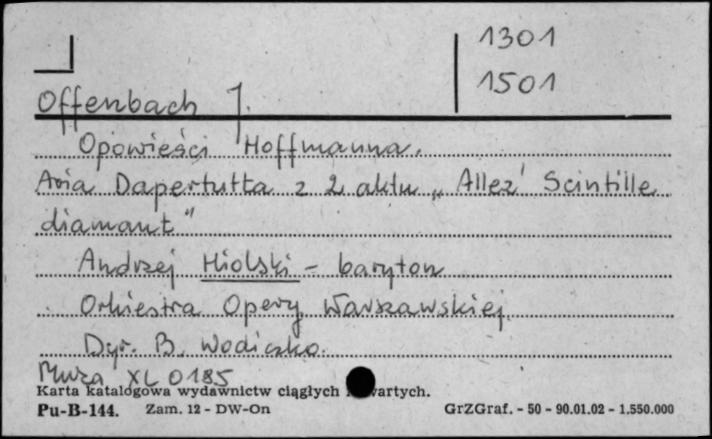 1301
1501
Offenbach J.
Opowieści Hoffmanna.
Aria Dapertutta z 2 aktu „Allez' Scintille
diamant"
Andrzej Hiolski - baryton
Orkiestra Opery Warszawskiej.
Dyr. B. Wodiczko.
Muza XL 0185
Karta katalogowa wydawnictw ciągłych wartych.
Pu-B-144. Zam. 12 - DW-On GrZGraf. - 50 - 90.01.02 - 1.550.000